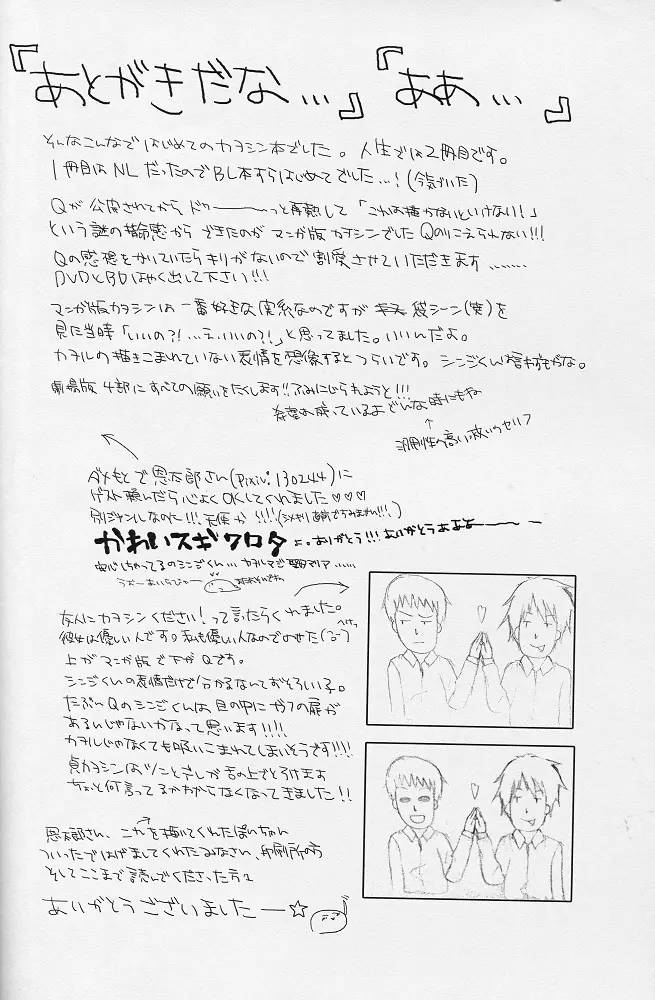 『あとがきだな…』『ああ…』
そんなこんなではじめてのカヲシン本でした。人生では2冊目です。
1冊目はNLだったのでBL本すらはじめてでした…!(今気づいた)
Qが公開されてからドゥーーーっと再熱して「これは描かないといけない!」
という謎の使命感からできたのがマンガ版カヲシンでした Qのりこえられない!!!
Qの感想をかいていたらキリがないので割愛させていただきます……
DVDとBDはやく出して下さい!!!
マンガ版カヲシンは一番好きな関係なのですがキス 袋シーン(笑)を
見た当時「いいの?!…え、いいの?!」と思ってました。いいんだよ。
カヲルの描きこまれていない表情を想像するとつらいです。シンジくんも
劇場版4部にすべての願いをたくします!!ふみにじられようと!!!
希望は残っているよどんな時にもね
↑
汎用性の高い救いのセリフ
ダメもとで恩太郎さん(pixiv:130244)に
ゲスト頼んだら心よくOKしてくれました♡♡♡
別ジャンルなのに!!!天使か!!!!
かわいスギワロタ よ。ありがとう!!!ありがとうよよよーーー
安心しちゃってるのシンジくん…カヲルマジ
友人にカヲシンください!って言ったらくれました。
彼女は優しい人です。私も優しい人なのでのせた
上がマンガ版で下がQです。
シンジくんの表情だけで分かるなんておそろしい子。
たぶんQのシンジくんは目の中にガフの扉が
あるんじゃないかなって思います!!!!
カヲルじゃなくても吸いこまれてしまいそうです!!!!
貞カヲシンはツンとデレが舌の上でとろけます
ちょっと何言ってるかわからなくなってきました!!
恩太郎さん、これを描いてくれたぽいちゃん
ついったではげましてくれたみなさん、印刷所の方
そしてここまで読んでくださった方々
ありがとうございましたー☆